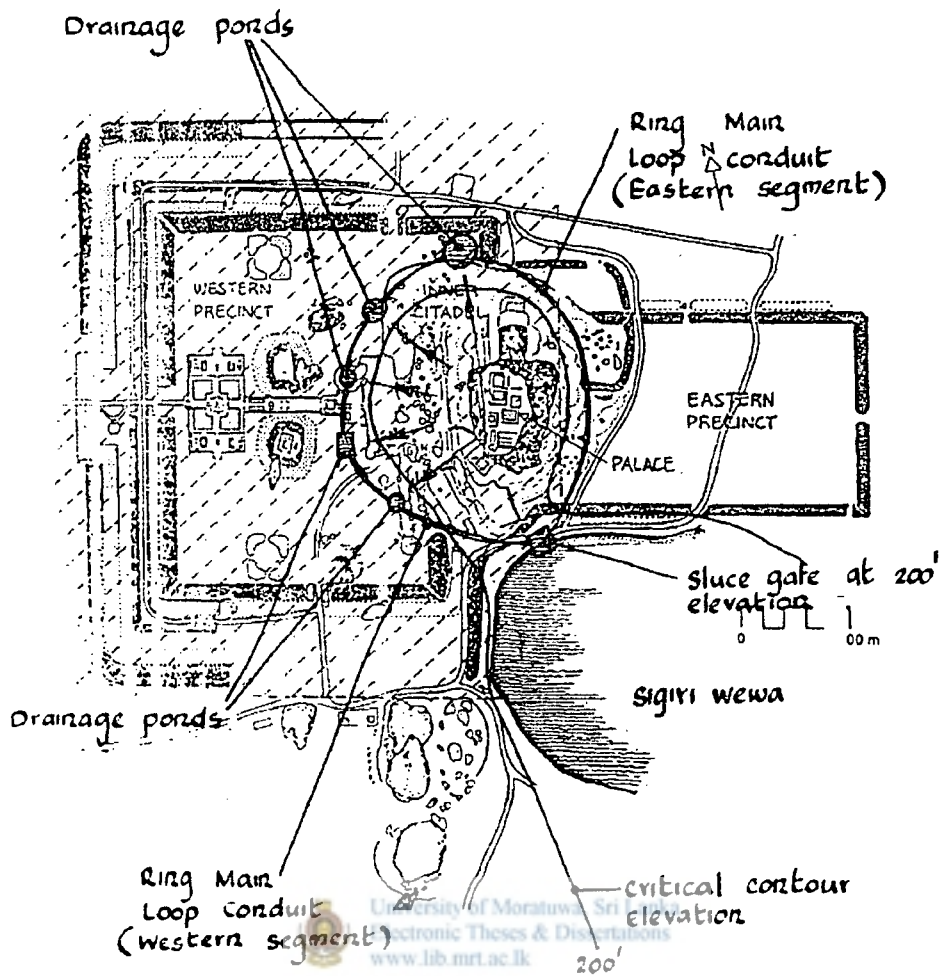 Drainage ponds
Ring Main
Loop conduit
(Eastern segment)
N
WESTERN
PRECINCT
INNER
CITADEL
EASTERN
PRECINCT
PALACE
Sluce gate at 200'
elevation
0 00 m
Sigiri wewa
Drainage ponds
Ring Main
Loop Conduit
(Western segment)
critical contour
elevation
200'
University of Moratuwa, Sri Lanka
Electronic Theses & Dissertations
www.lib.mrt.ac.lk